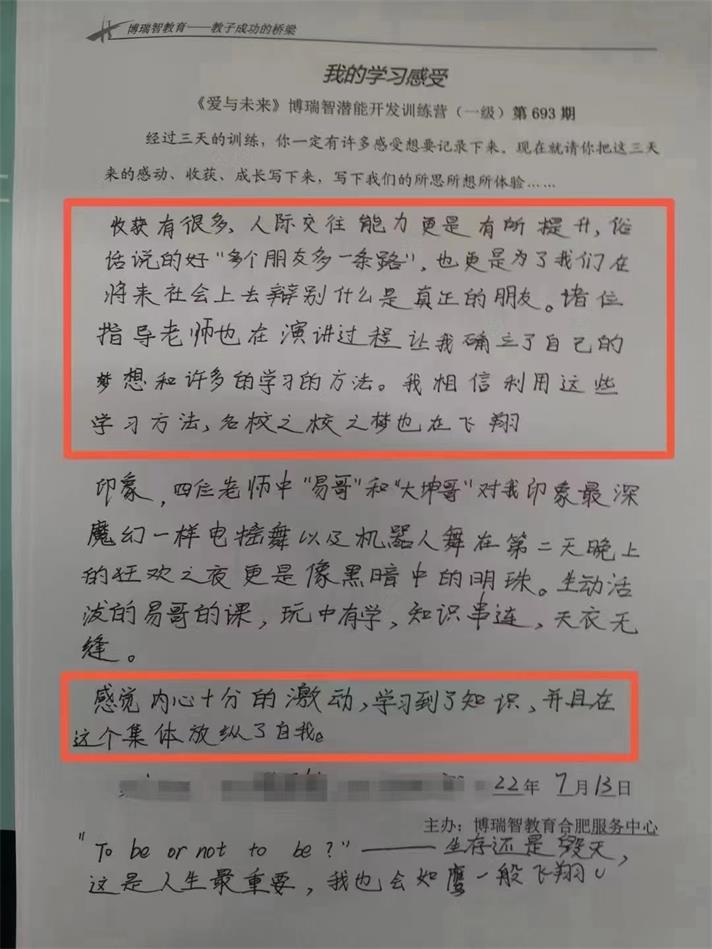 博瑞智教育——教子成功的桥梁
我的学习感受
《爱与未来》博瑞智潜能开发训练营（一级）第 693 期
经过三天的训练，你一定有许多感受想要记录下来。现在就请你把这三天
来的感动、收获、成长写下来，写下我们的所思所想所体验……
收获有很多、人际交往能力更是有所提升，俗
话说的好"多个朋友多一条路"，也更是为了我们在
将来社会上去辩别什么是真正的朋友。诸位
指导老师也在演讲过程让我确立了自己的
梦想和许多的学习的方法。我相信利用这些
学习方法，名校之校之梦也在飞翔
印象，四位老师中"易哥"和"大坤哥"对我印象最深
魔幻一样电摇舞以及机器人舞在第二天晚上
的狂欢之夜更是像黑暗中的明珠。生动活
泼的易哥的课，玩中有学，知识串连，天衣无
缝。
感觉内心十分的激动，学习到了知识，并且在
这个集体放纵了自我。
22年 7月13日
主办：博瑞智教育合肥服务中心
"To be or not to be?"——生存还是毁灭，
这是人生最重要，我也会如鹰一般飞翔